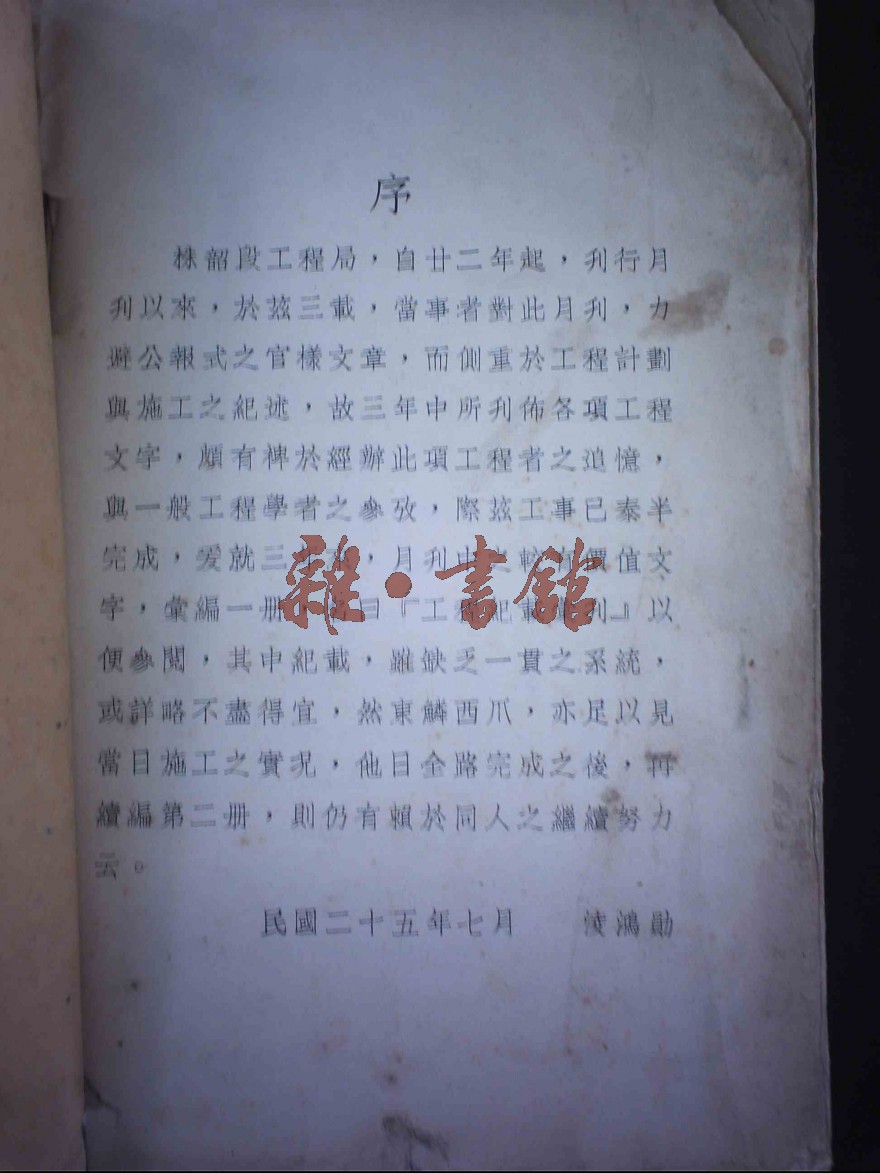 序
株韶段工程局，自廿二年起，刋行月
刋以來，於茲三載，當事者對此月刋，力
避公報式之官樣文章，而側重於工程計劃
與施工之紀述，故三年中所刋佈各項工程
文字，頗有裨於經辦此項工程者之追憶，
與一般工程學者之參攷，際茲工事已泰半
完成，爰就三年來，月刋中較有價值文
字，彙編一册，曰『工程紀載刋』以
便參閱，其中紀載，雖缺乏一貫之系統，
或詳略不盡得宜，然東鱗西爪，亦足以見
當日施工之實况，他日全路完成之後，再
續編第二册，則仍有賴於同人之繼續努力
云。
民國二十五年七月 淩鴻勛
雜·書館